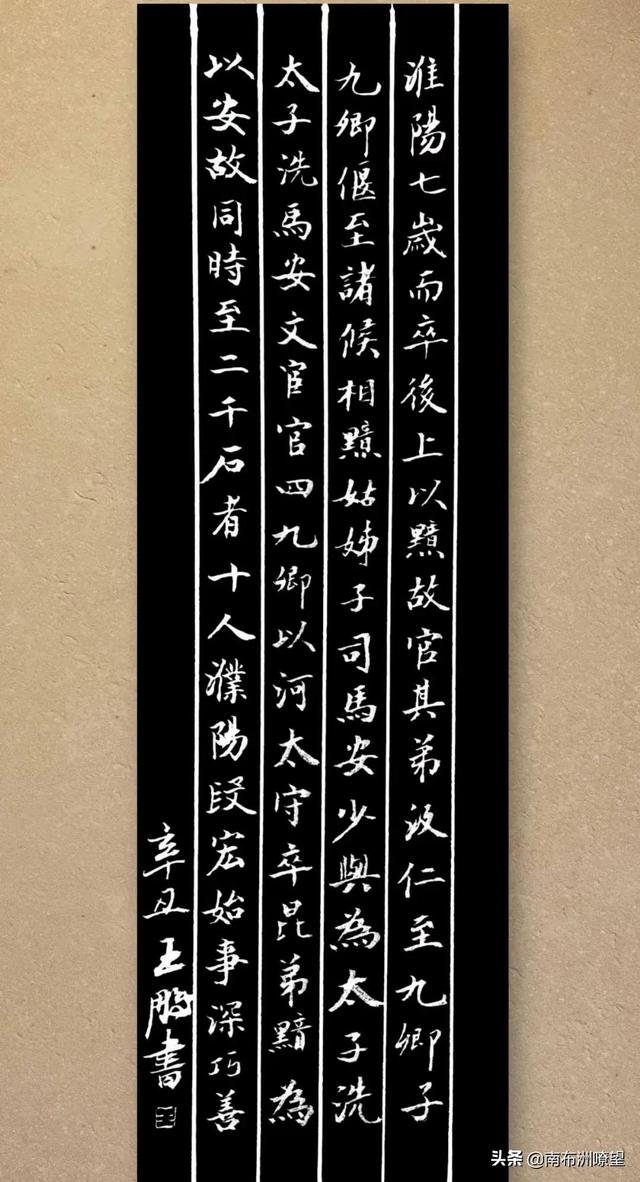 淮陽七歲而卒後上以黯故官其弟汲仁至九卿子
九卿偃至諸候相黯姑姊子司馬安少與為太子洗
太子洗馬安文宦官四九卿以河太守卒昆弟黯為
以安故同時至二千石者十人濮陽段宏始事深巧善
辛丑王鵬書
头条 @南布洲嘹望